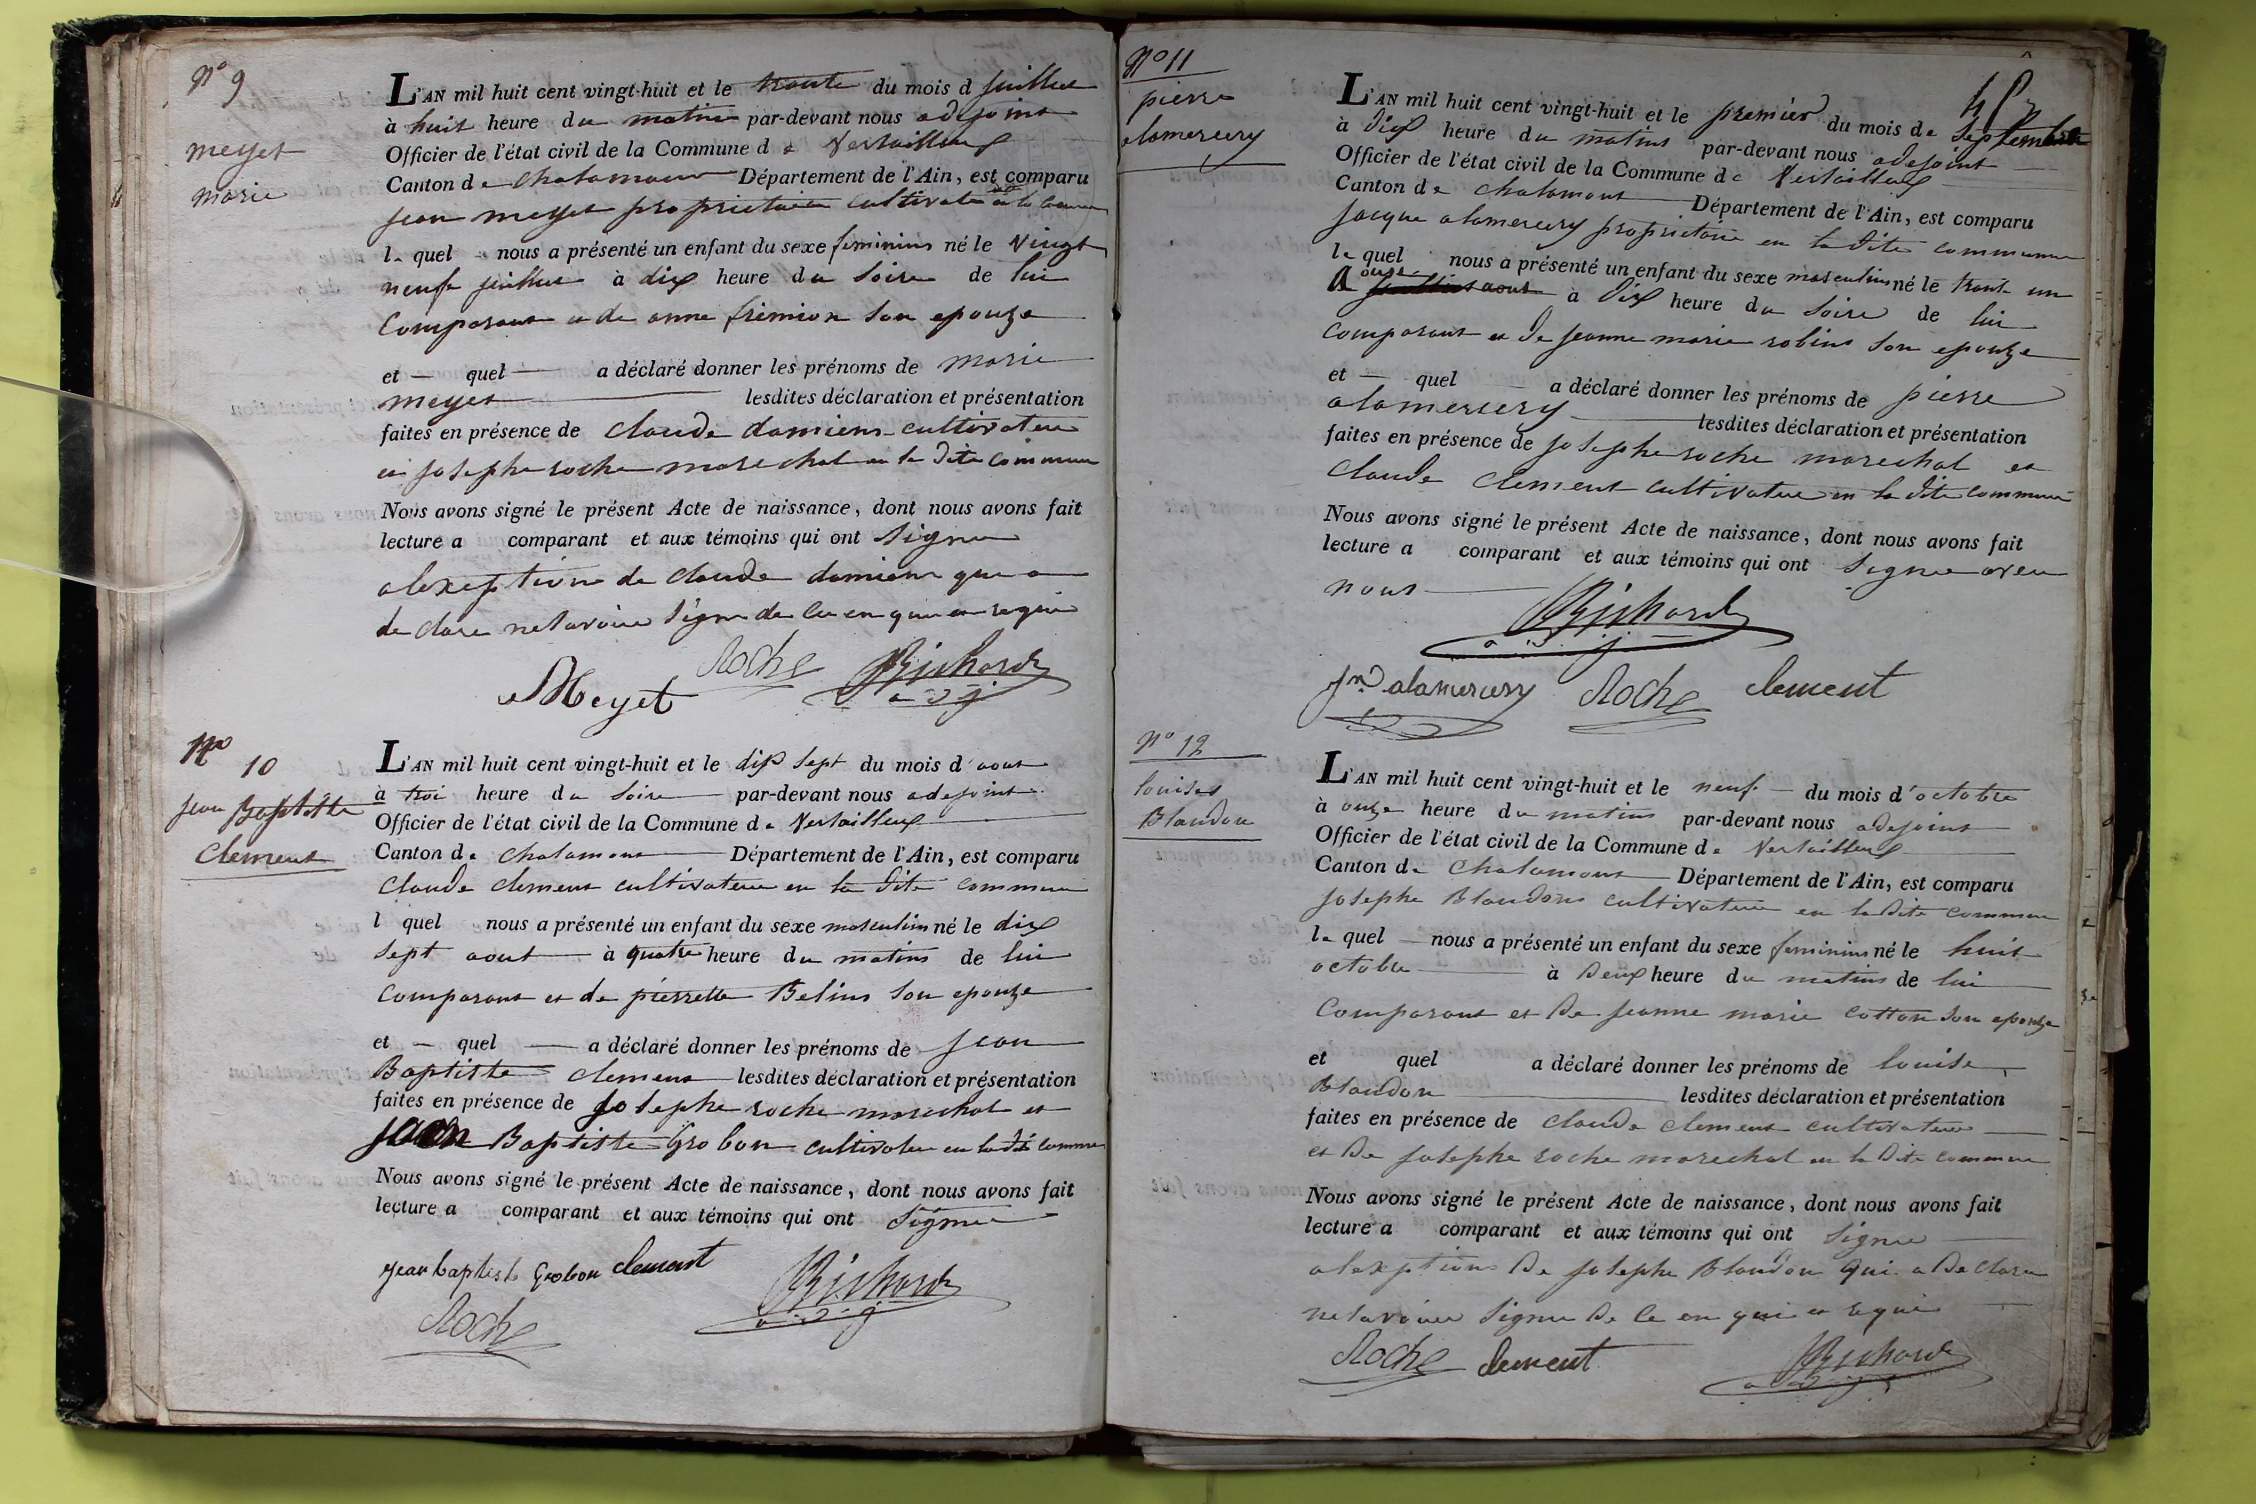 N° 9
meyet
marie
L'AN mil huit cent vingt-huit et le trante du mois d juillet
à huit heure du matin par-devant nous adejoint
Officier de l'état civil de la Commune de Versailleux
Canton de chalamont Département de l'Ain, est comparu
jean meyet proprietaire cultivate en la
le quel nous a présenté un enfant du sexe feminins né le vingt
neufe juillet à dix heure du soire de lui
comparant et de anne frimion son epouze
et quel a déclaré donner les prénoms de marie
meyet lesdites déclaration et présentation
faites en présence de claude damiens cultivateur
et josephe roche marechal en la dite commune
Nous avons signé le présent Acte de naissance, dont nous avons fait
lecture a comparant et aux témoins qui ont signe
alexeptions de claude damiens que a
de clare ne savoire signe de ce en quie et requie
Roche Bichard
Meyet adj
N° 10
jean Baptiste
Clement
L'AN mil huit cent vingt-huit et le dix sept du mois d'aout
à troi heure du soire par-devant nous adejoint
Officier de l'état civil de la Commune de Versailleux
Canton de chalamont Département de l'Ain, est comparu
Claude clement cultivateur en la dite commune
l quel nous a présenté un enfant du sexe masculins né le dix
sept aout à quatre heure du matins de lui
comparant et de pierrette Belins son epouze
et quel a déclaré donner les prénoms de jean
Baptiste clement lesdites déclaration et présentation
faites en présence de josephe roche marechal et
jean Baptiste Grobon cultivateur en la dite commune
Nous avons signé le présent Acte de naissance, dont nous avons fait
lecture a comparant et aux témoins qui ont signe
jean baptiste Grobon clement Bichard
Roche adj
N° 11
pierre
alamercery
L'AN mil huit cent vingt-huit et le premier du mois de septembre
à dix heure du matins par-devant nous adejoint
Officier de l'état civil de la Commune de Versailleux
Canton de chalamont Département de l'Ain, est comparu
jacque alamercery proprietaire en la dite commune
le quel nous a présenté un enfant du sexe masculins né le trante un
aout à dix heure du soire de lui
comparant et de jeanne marie robins son epouze
et quel a déclaré donner les prénoms de pierre
alamercery lesdites déclaration et présentation
faites en présence de josephe roche marechal et
claude clement cultivateur en la dite commune
Nous avons signé le présent Acte de naissance, dont nous avons fait
lecture a comparant et aux témoins qui ont signe avec
nous
Bichard
adj
alamercery Roche clement
N° 12
louises
Blandon
L'AN mil huit cent vingt-huit et le neufe du mois d'octobre
à onze heure du matins par-devant nous adejoint
Officier de l'état civil de la Commune de Versailleux
Canton de chalamont Département de l'Ain, est comparu
josephe Blandons cultivateur en la dite commune
le quel nous a présenté un enfant du sexe feminins né le huit
octobre à deux heure du matins de lui
comparant et de jeanne marie cotton son epouze
et quel a déclaré donner les prénoms de louise
Blandon lesdites déclaration et présentation
faites en présence de claude clement cultivateur
et de josephe roche marechal en la dite commune
Nous avons signé le présent Acte de naissance, dont nous avons fait
lecture a comparant et aux témoins qui ont signe
alexption de josephe Blandon qui a de clare
ne savoire signe de ce en quie et requie
Roche clement Bichard
adj